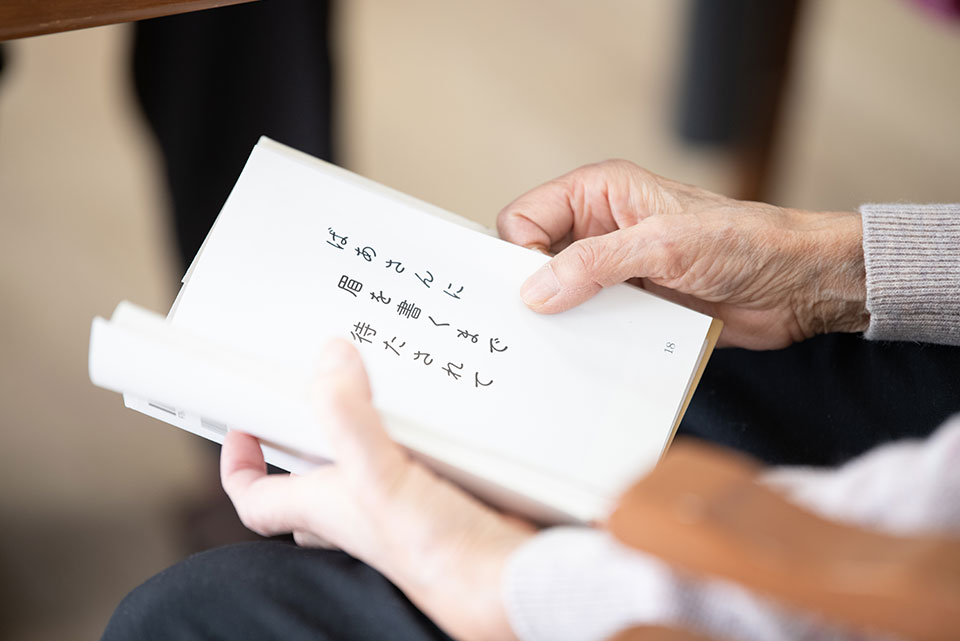 ばあさんに
眉を書くまで
待たされて
18